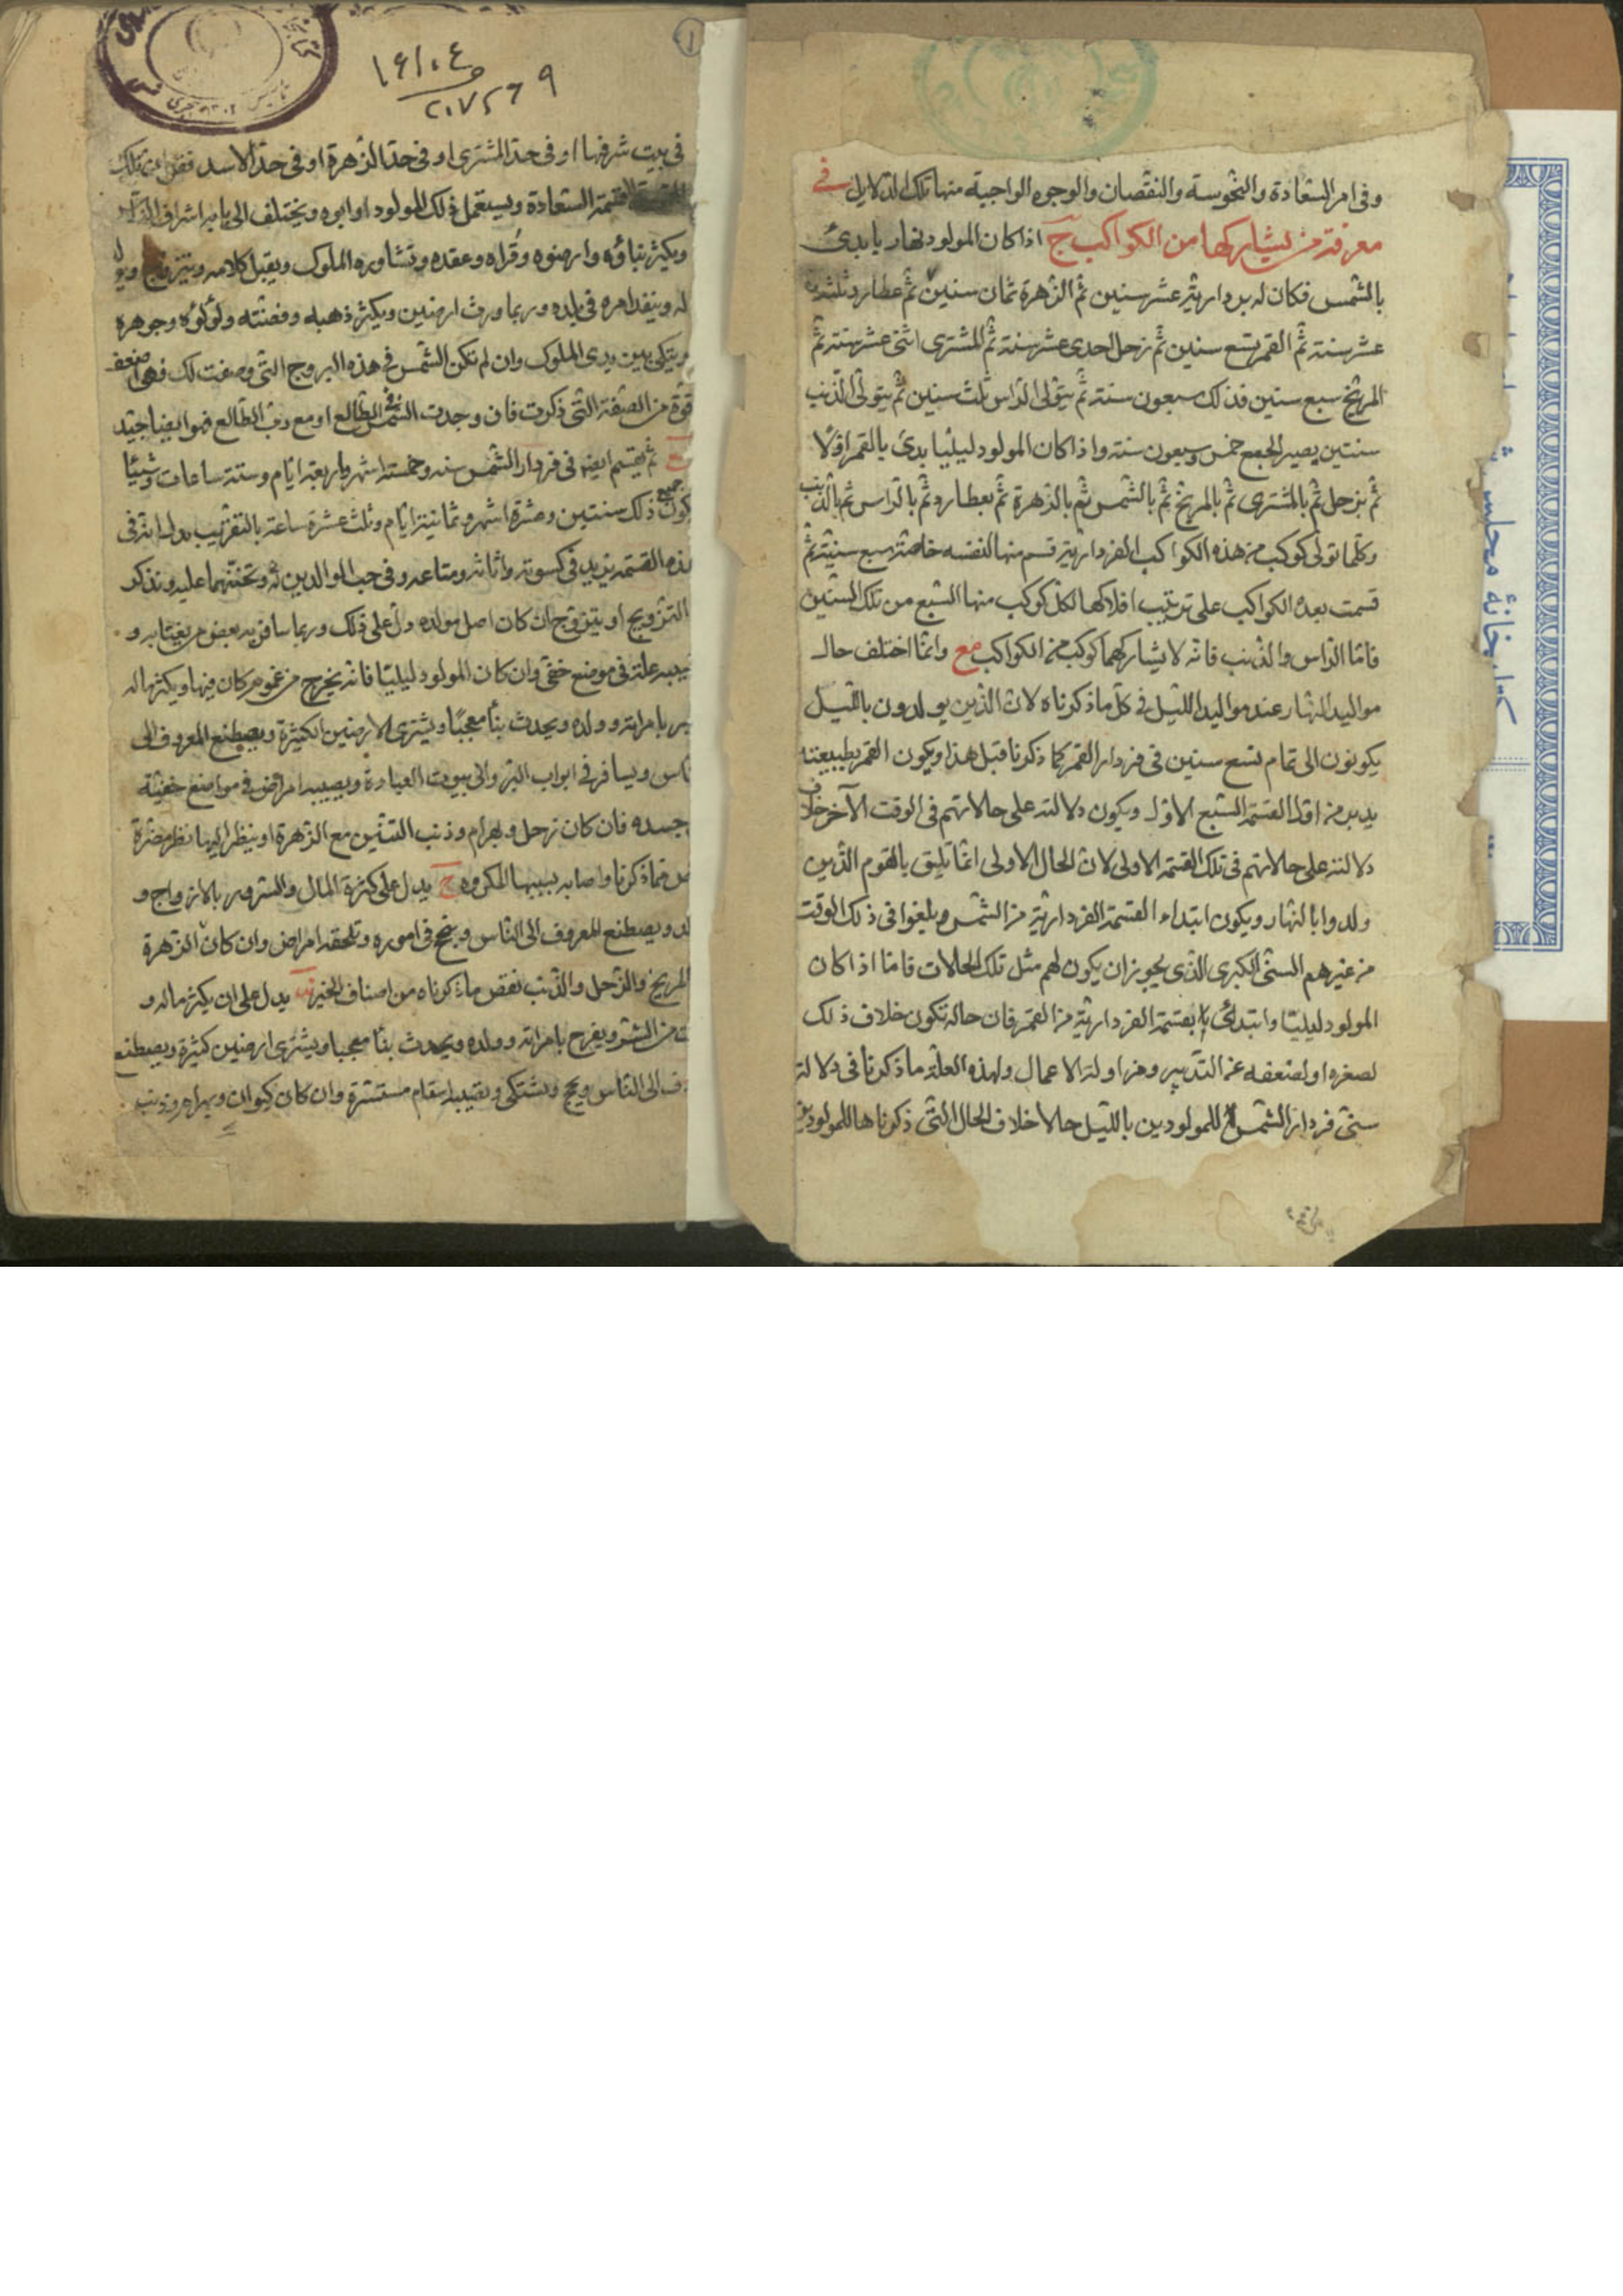 وفى امر السعادة والنحوسة والنقصان والوجوه الواجبة منها تلك الدلايل فى
معرفة من يشاركها من الكواكب ج اذا كان المولود نهاريا بدئ
بالشمس فكان له عشر سنين ثم الزهرة ثمان سنين ثم عطارد ثلثة
عشر سنة ثم القمر تسع سنين ثم زحل احدى عشر سنة ثم المشترى اثنى عشر سنة ثم
المريخ سبع سنين فذلك سبعون سنة ثم يتولى الراس ثلث سنين ثم يتولى الذنب
سنتين يصير الجمع خمس وسبعون سنة واذا كان المولود ليليا بدئ بالقمر اولا
ثم بزحل ثم بالمشترى ثم بالمريخ ثم بالشمس ثم بالزهرة ثم بعطارد ثم بالراس ثم بالذنب
وكلما تولى كوكب من هذه الكواكب الفردارية قسم منها لنفسه خاصة سبع سنيه ثم
قسمت بعده الكواكب على ترتيب افلاكها لكل كوكب منها السبع من تلك السنين
فاما الراس والذنب فانه لا يشاركهما كوكب من الكواكب مع وانما اختلف حال
مواليد النهار عند مواليد الليل فى كل ما ذكرناه لان الذين يولدون بالليل
يكونون الى تمام تسع سنين فى فردار القمر كما ذكرنا قبل هذا ويكون القمر بطبيعته
يدبر من اول القسمة السبع الاول ويكون دلالته على حالاتهم فى الوقت الآخر خلاف
دلالته على حالاتهم فى تلك القسمة الاولى لان الحال الاولى انما تليق بالقوم الذين
ولدوا بالنهار ويكون ابتداء القسمة الفردارية من الشمس وبلغوا فى ذلك الوقت
من غيرهم السنى الكبرى الذى يجوز ان يكون لهم مثل تلك الحالات فاما اذا كان
المولود ليليا وابتدئ بقسمة الفردارية من القمر فان حاله تكون خلاف ذلك
لصغره او لضعفه عن التدبير ومزاولة الاعمال ولهذه العلة ما ذكرنا فى دلالة
سنى فردار الشمس للمولودين بالليل حالا خلاف الحال التى ذكرناها للمولودين
١
١٦١٠٤
٢٠٧٥٦٩
فى بيت شرفها او فى حد المشترى او فى حد الزهرة او فى حد الاسد تلك
القسمة السعادة ويستعمل ذلك المولود او ابوه ويختلف الى بابه اشراف
ويكثر بناؤه وارضوه وقراه وعقده وتشاوره الملوك ويقبل كلامه ويتزوج ويولد
له وينفذ امره فى بلده وربما ورث ارضين ويكثر ذهبه وفضته ولؤلؤه وجوهره
ويتكى بين يدى الملوك وان لم تكن الشمس فى هذه البروج التى وصفت لك فهى اضعف
قوة من الصفة التى ذكرت فان وجدت الشمس فى الطالع او مع رب الطالع فهو ايضا جيد
ثم يقسم ايضا فى فردار الشمس سنة وخمسة اشهر واربعة ايام وستة ساعات وشيئا
كون جميع ذلك سنتين وعشرة اشهر وثمانية ايام وثلث عشرة ساعة بالتقريب يدل انه فى
هذه القسمة يزيد فى كسوته واثاثه ومتاعه وفى حب الوالدين له وتحننهما عليه ويذكر
التزويج او يتزوج ان كان اصل مولده دل على ذلك وربما سافر به بعض من يغتابه و
يصيبه علة فى موضع خفى وان كان المولود ليليا فانه يخرج من غموم كان فيها ويكثر ماله
يسر بامراته وولده ويحدث بنأ معجبا ويشترى الارضين الكثيرة ويصطنع المعروف الى
الناس ويسافر فى ابواب البر والى بيوت العبادة ويصيبه امراض فى مواضع خفية
جسده فان كان زحل وبهرام وذنب التنين مع الزهرة او ينظر اليها نظر مضرة
نقص مما ذكرنا واصابه بسببها المكروه ج يدل على كثرة المال والسرور بالازواج و
الولد ويصطنع المعروف الى الناس وينجح فى اموره وتلحقه امراض وان كان الزهرة
المريخ والزحل والذنب نقص ما ذكرناه من اصناف الخير يدل على ان يكثر ماله و
من الشر ويفرح بامراته وولده ويحدث بنأ معجبا ويشترى ارضين كثيرة ويصطنع
المعروف الى الناس ويحج ويشتكى وتصيبه اسقام مستترة وان كان كيوان وبهرام وذنب